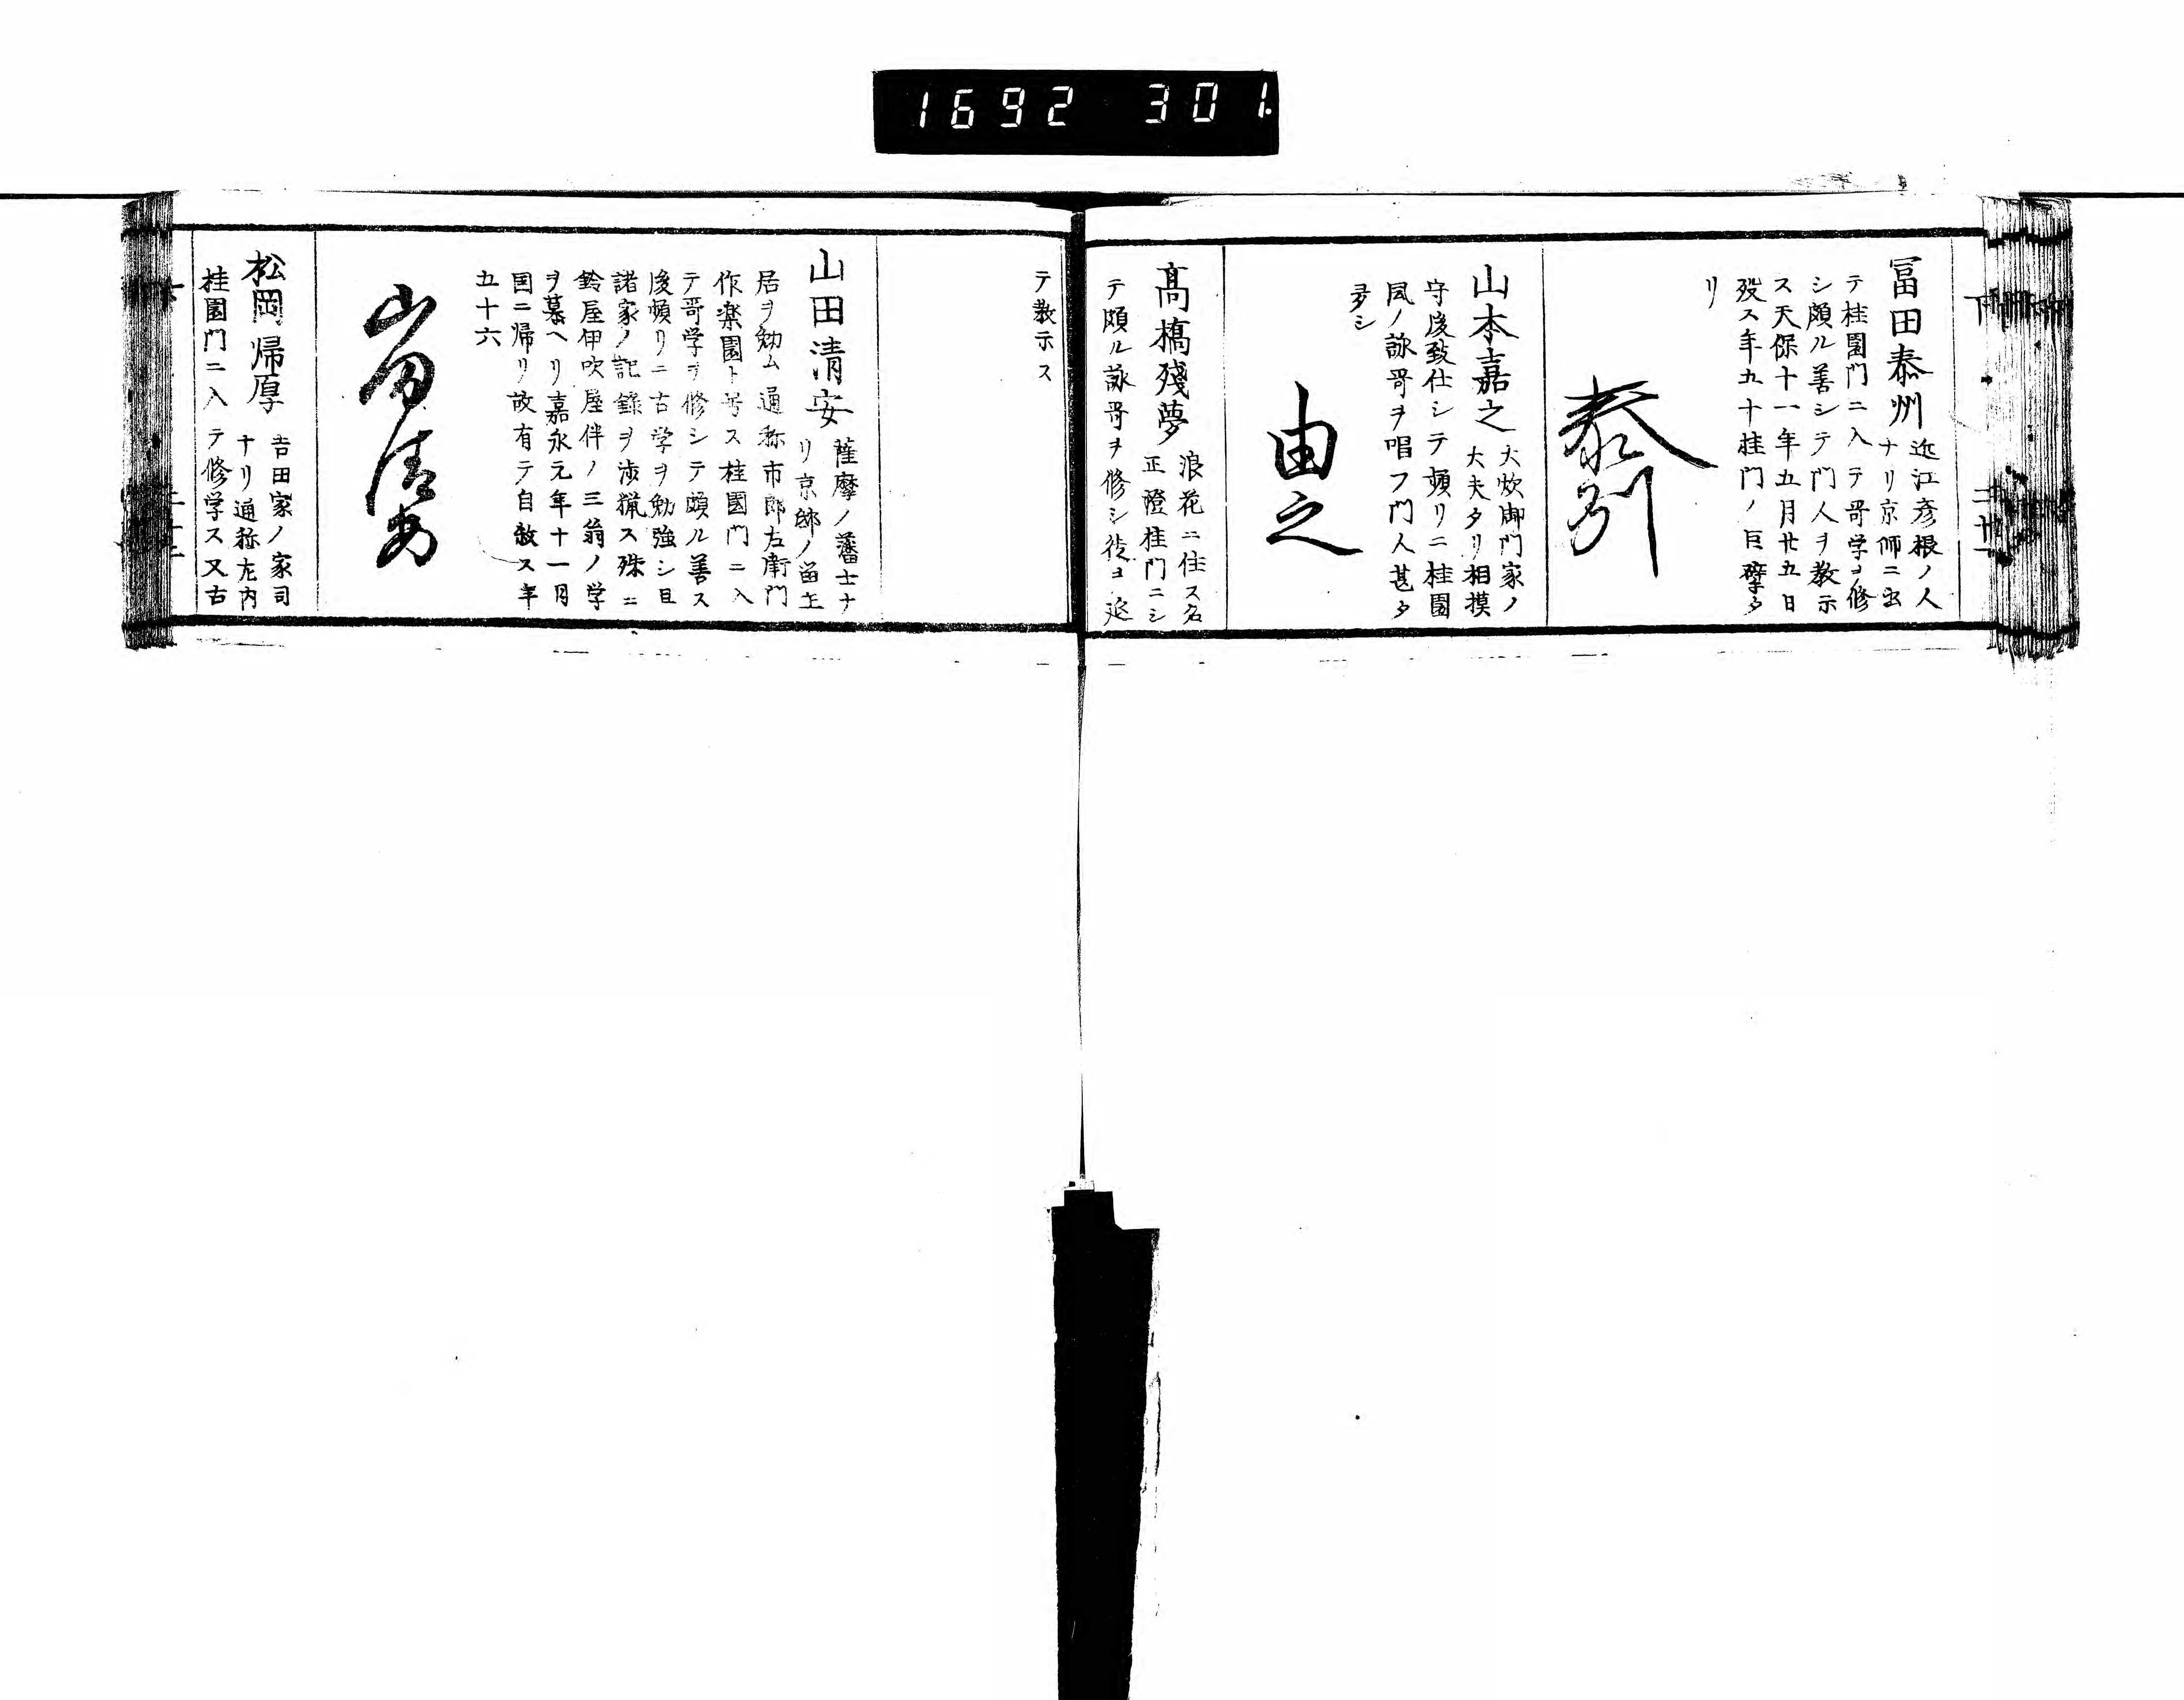 1692 301
冨田泰州
近江彦根ノ人
ナリ京師ニ出
テ桂園門ニ入テ哥学ヲ修
シ頗ル善シテ門人ヲ教示
ス天保十一年五月廿五日
歿ス年五十桂門ノ巨擘タ
リ
泰州
山本嘉之
大炊御門家ノ
大夫タリ相摸
守後致仕シテ頻リニ桂園
風ノ詠哥ヲ唱フ門人甚タ
多シ
由之
髙橋殘夢
浪花ニ住ス名
正澄桂門ニシ
テ頗ル詠哥ヲ修シ徒ヨ延
テ教示ス
山田清安
薩摩ノ藩士ナ
リ京邸ノ留主
居ヲ勉ム通称市郎左衛門
作楽園ト号ス桂園門ニ入
テ哥学ヲ修シテ頗ル善ス
後頻リニ古学ヲ勉強シ且
諸家ノ記録ヲ渉猟ス殊ニ
鈴屋伊吹屋伴ノ三翁ノ学
ヲ慕ヘリ嘉永元年十一月
国ニ帰リ故有テ自殺ス年
五十六
山田清安
松岡帰厚
吉田家ノ家司
ナリ通称左内
桂園門ニ入テ修学ス又古